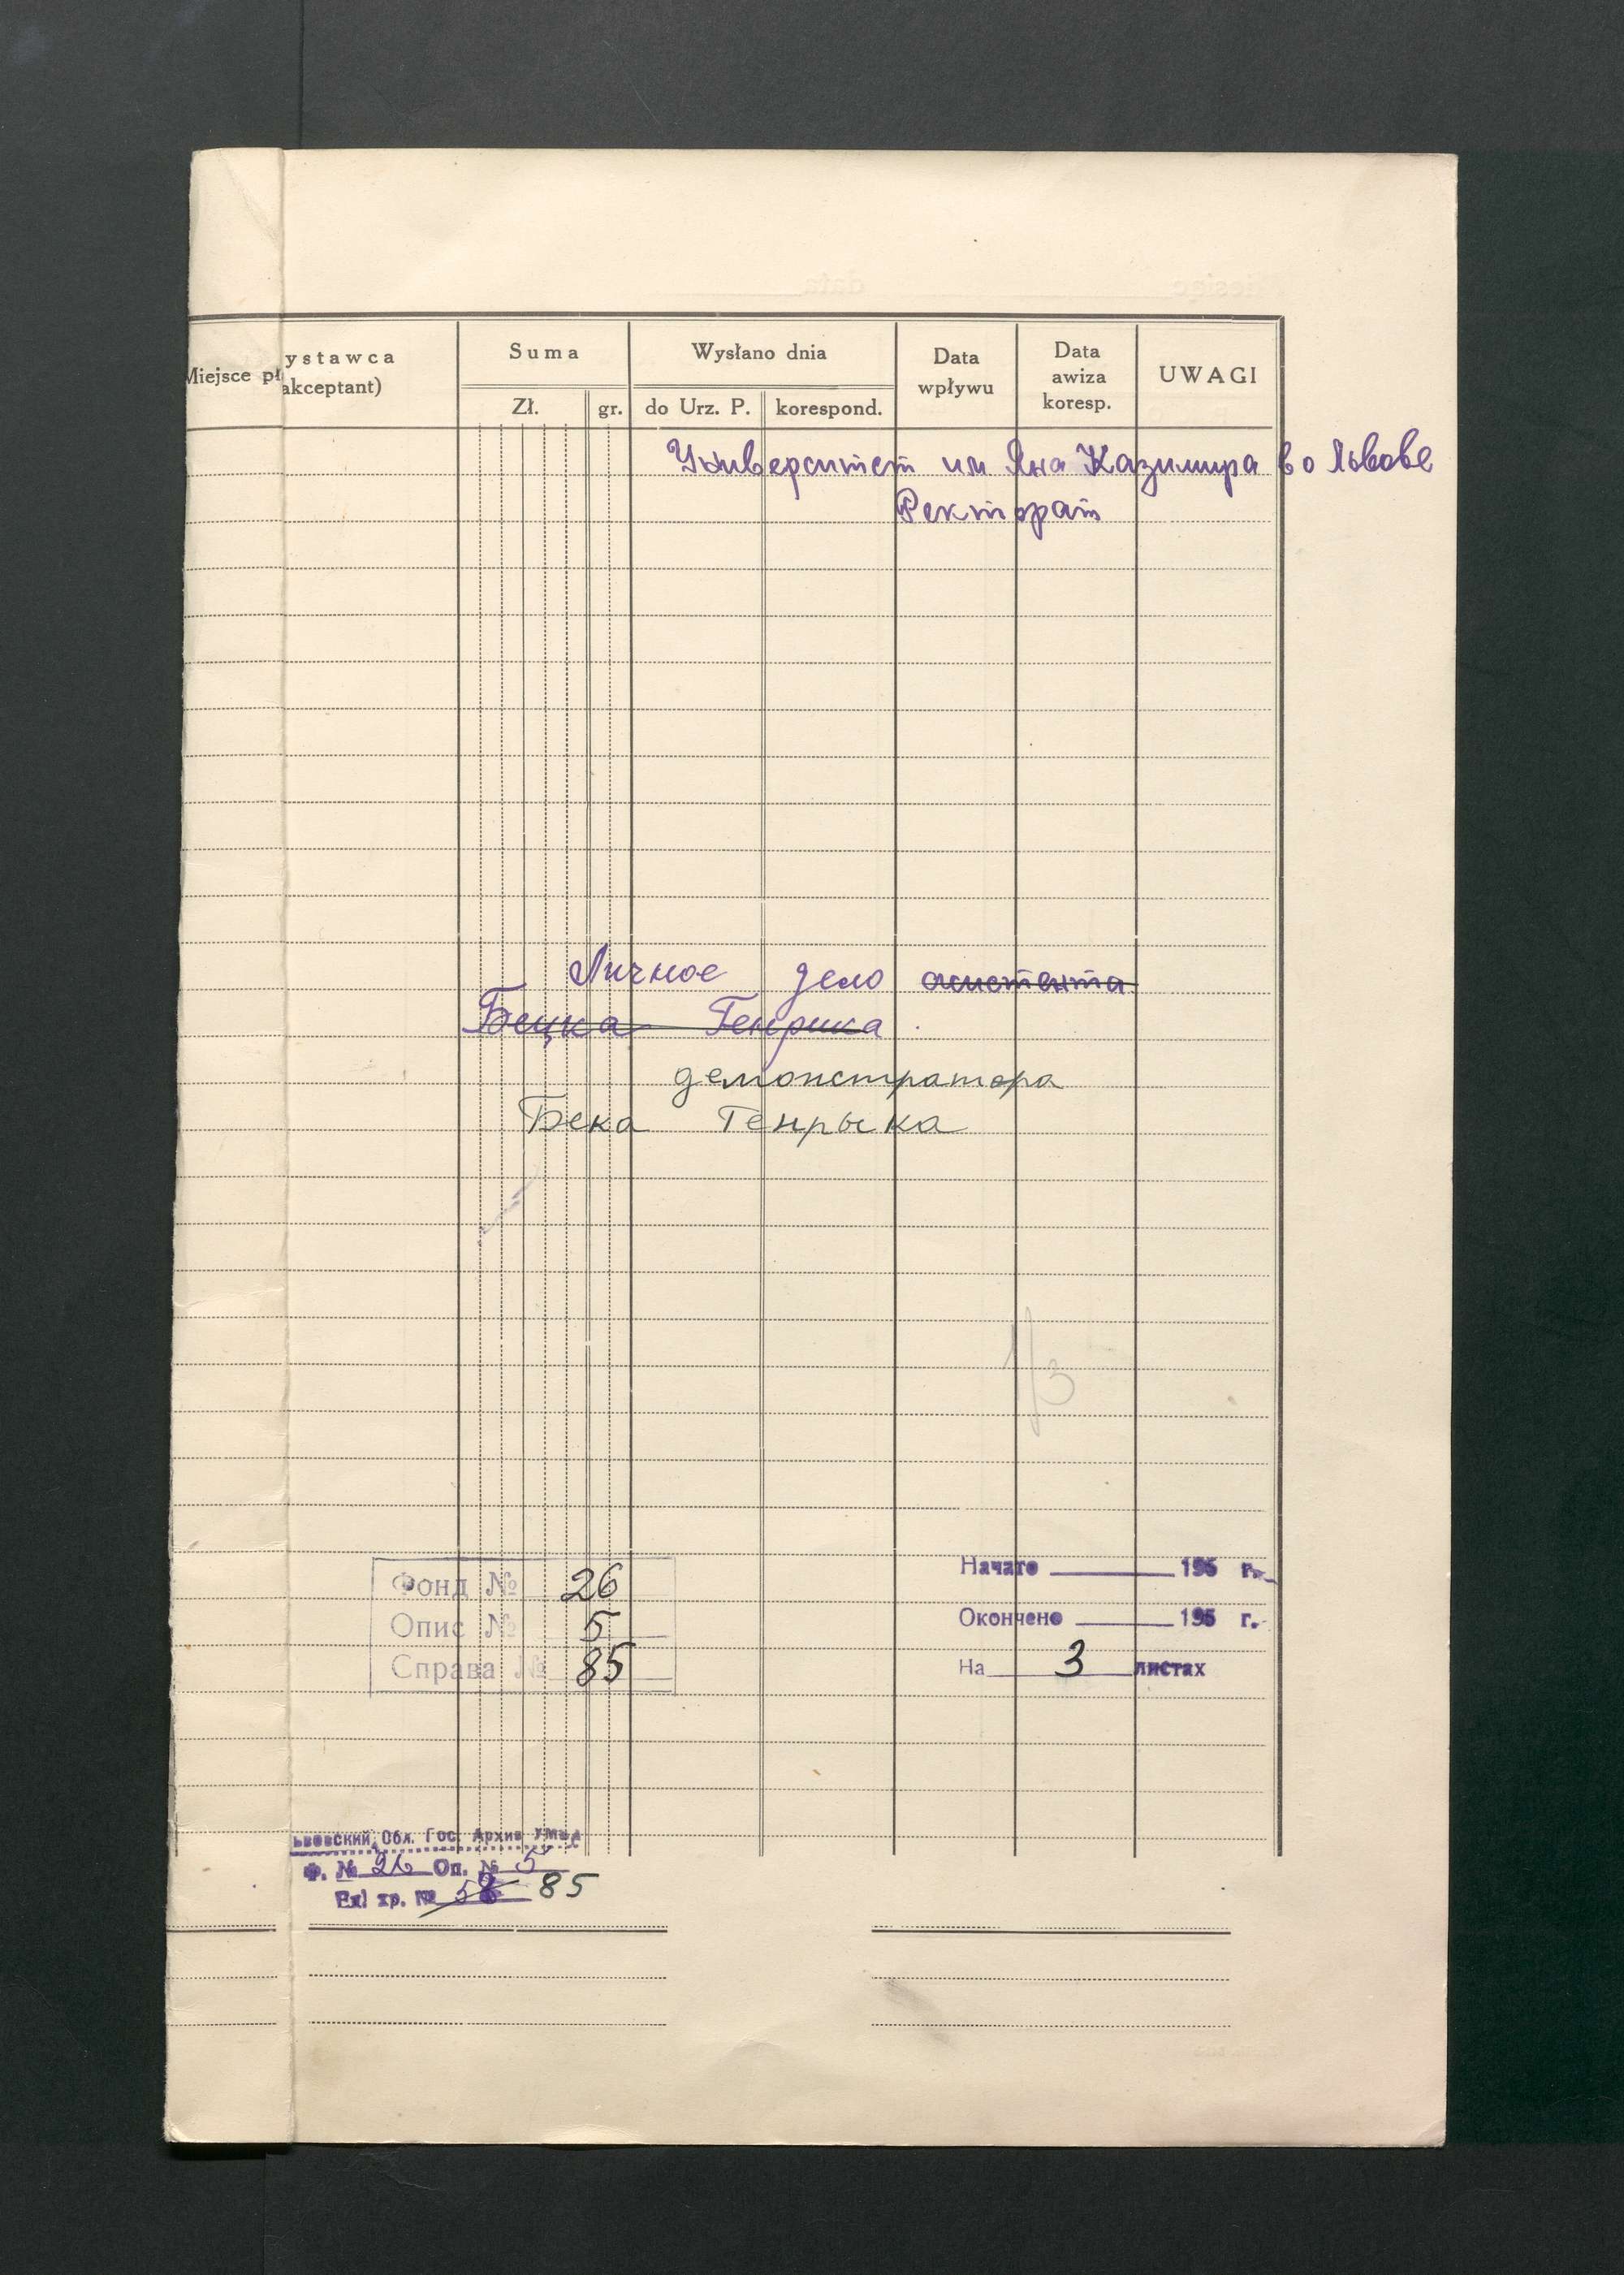 ystawca
Miejsce pł
akceptant)
Suma
Zł.
gr.
Wysłano dnia
do Urz. P.
korespond.
Data
wpływu
Data
awiza
koresp.
UWAGI
Университет им Яна Казимира во Львове
Ректорат
Личное дело асистента
Бецка Генрика
демонстратора
Бека Генрыка
1/3
Фонд № 26
Опис № 5
Справа № 85
Начато 195 г.
Окончено 195 г.
На 3 листах
ьвовский Обл. Гос. Архив УМВД
Ф. № 26 Оп. № 5
Ед. хр. № 58 85